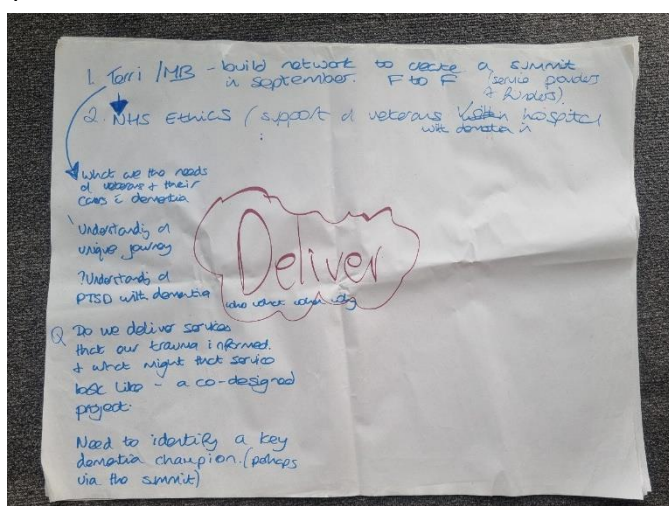 1. Terri / MB - build network to create a summit
in september. F to F (service providers
& funders)
2. NHS Ethics / support of veterans hospital
with dementia in
:
What are the needs
of veterans & their
carers c dementia
Understanding of
unique journey
?Understanding of
PTSD with dementia who what when why
Deliver
Q Do we deliver services
that our trauma informed.
& what might that service
look like - a co-designed
project.
Need to identify a key
dementia champion. (perhaps
via the summit)